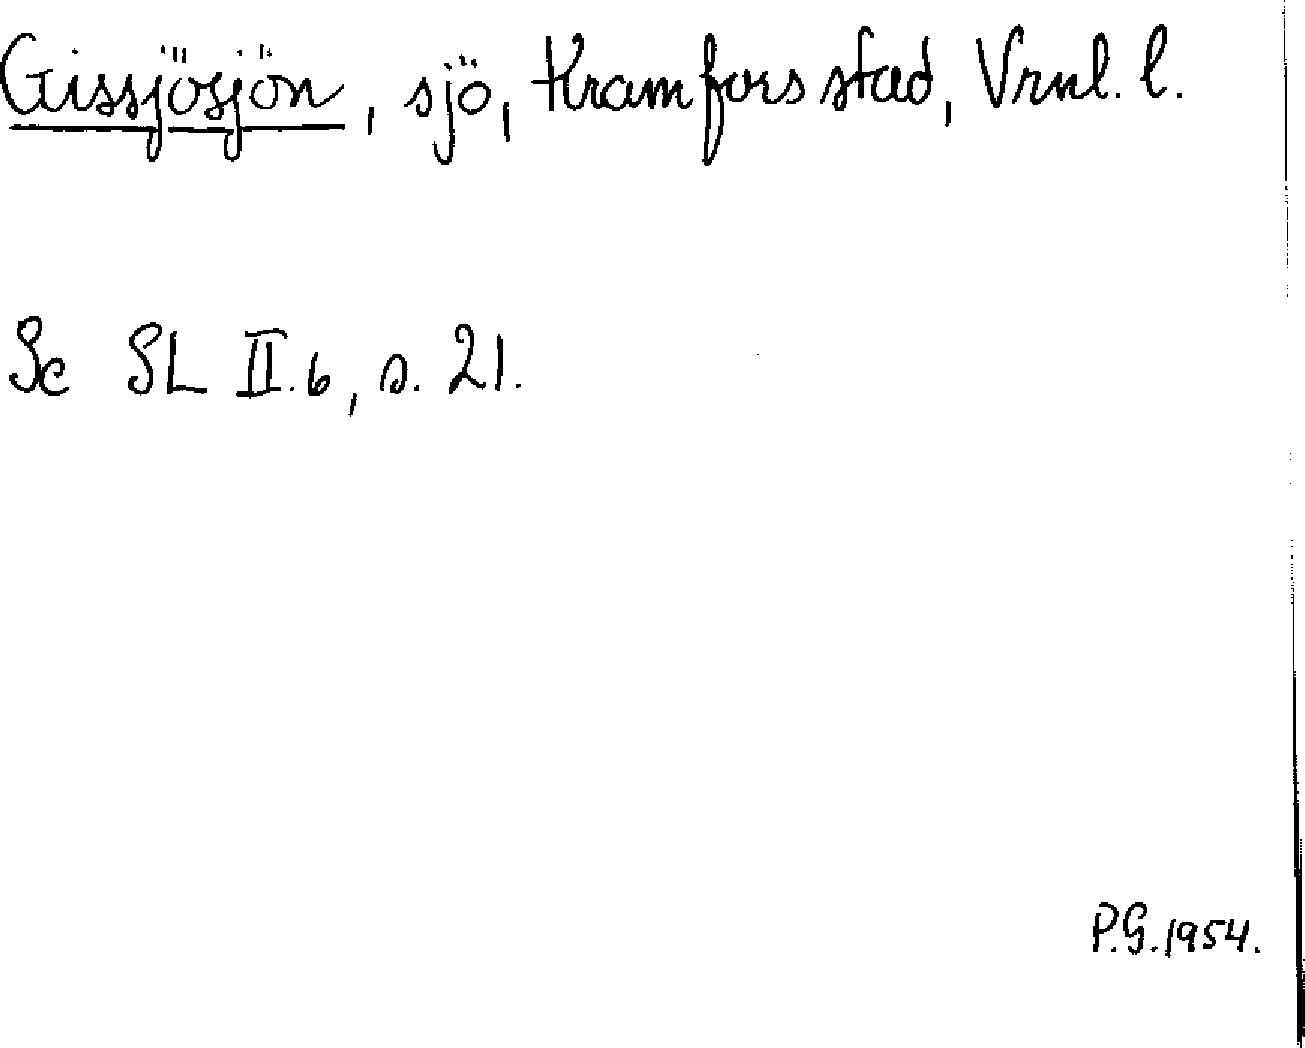 Gissjösjön, sjö, Kramfors stad, Vrnl. l.
Se SL II.6, s. 21.
P.G. 1954.